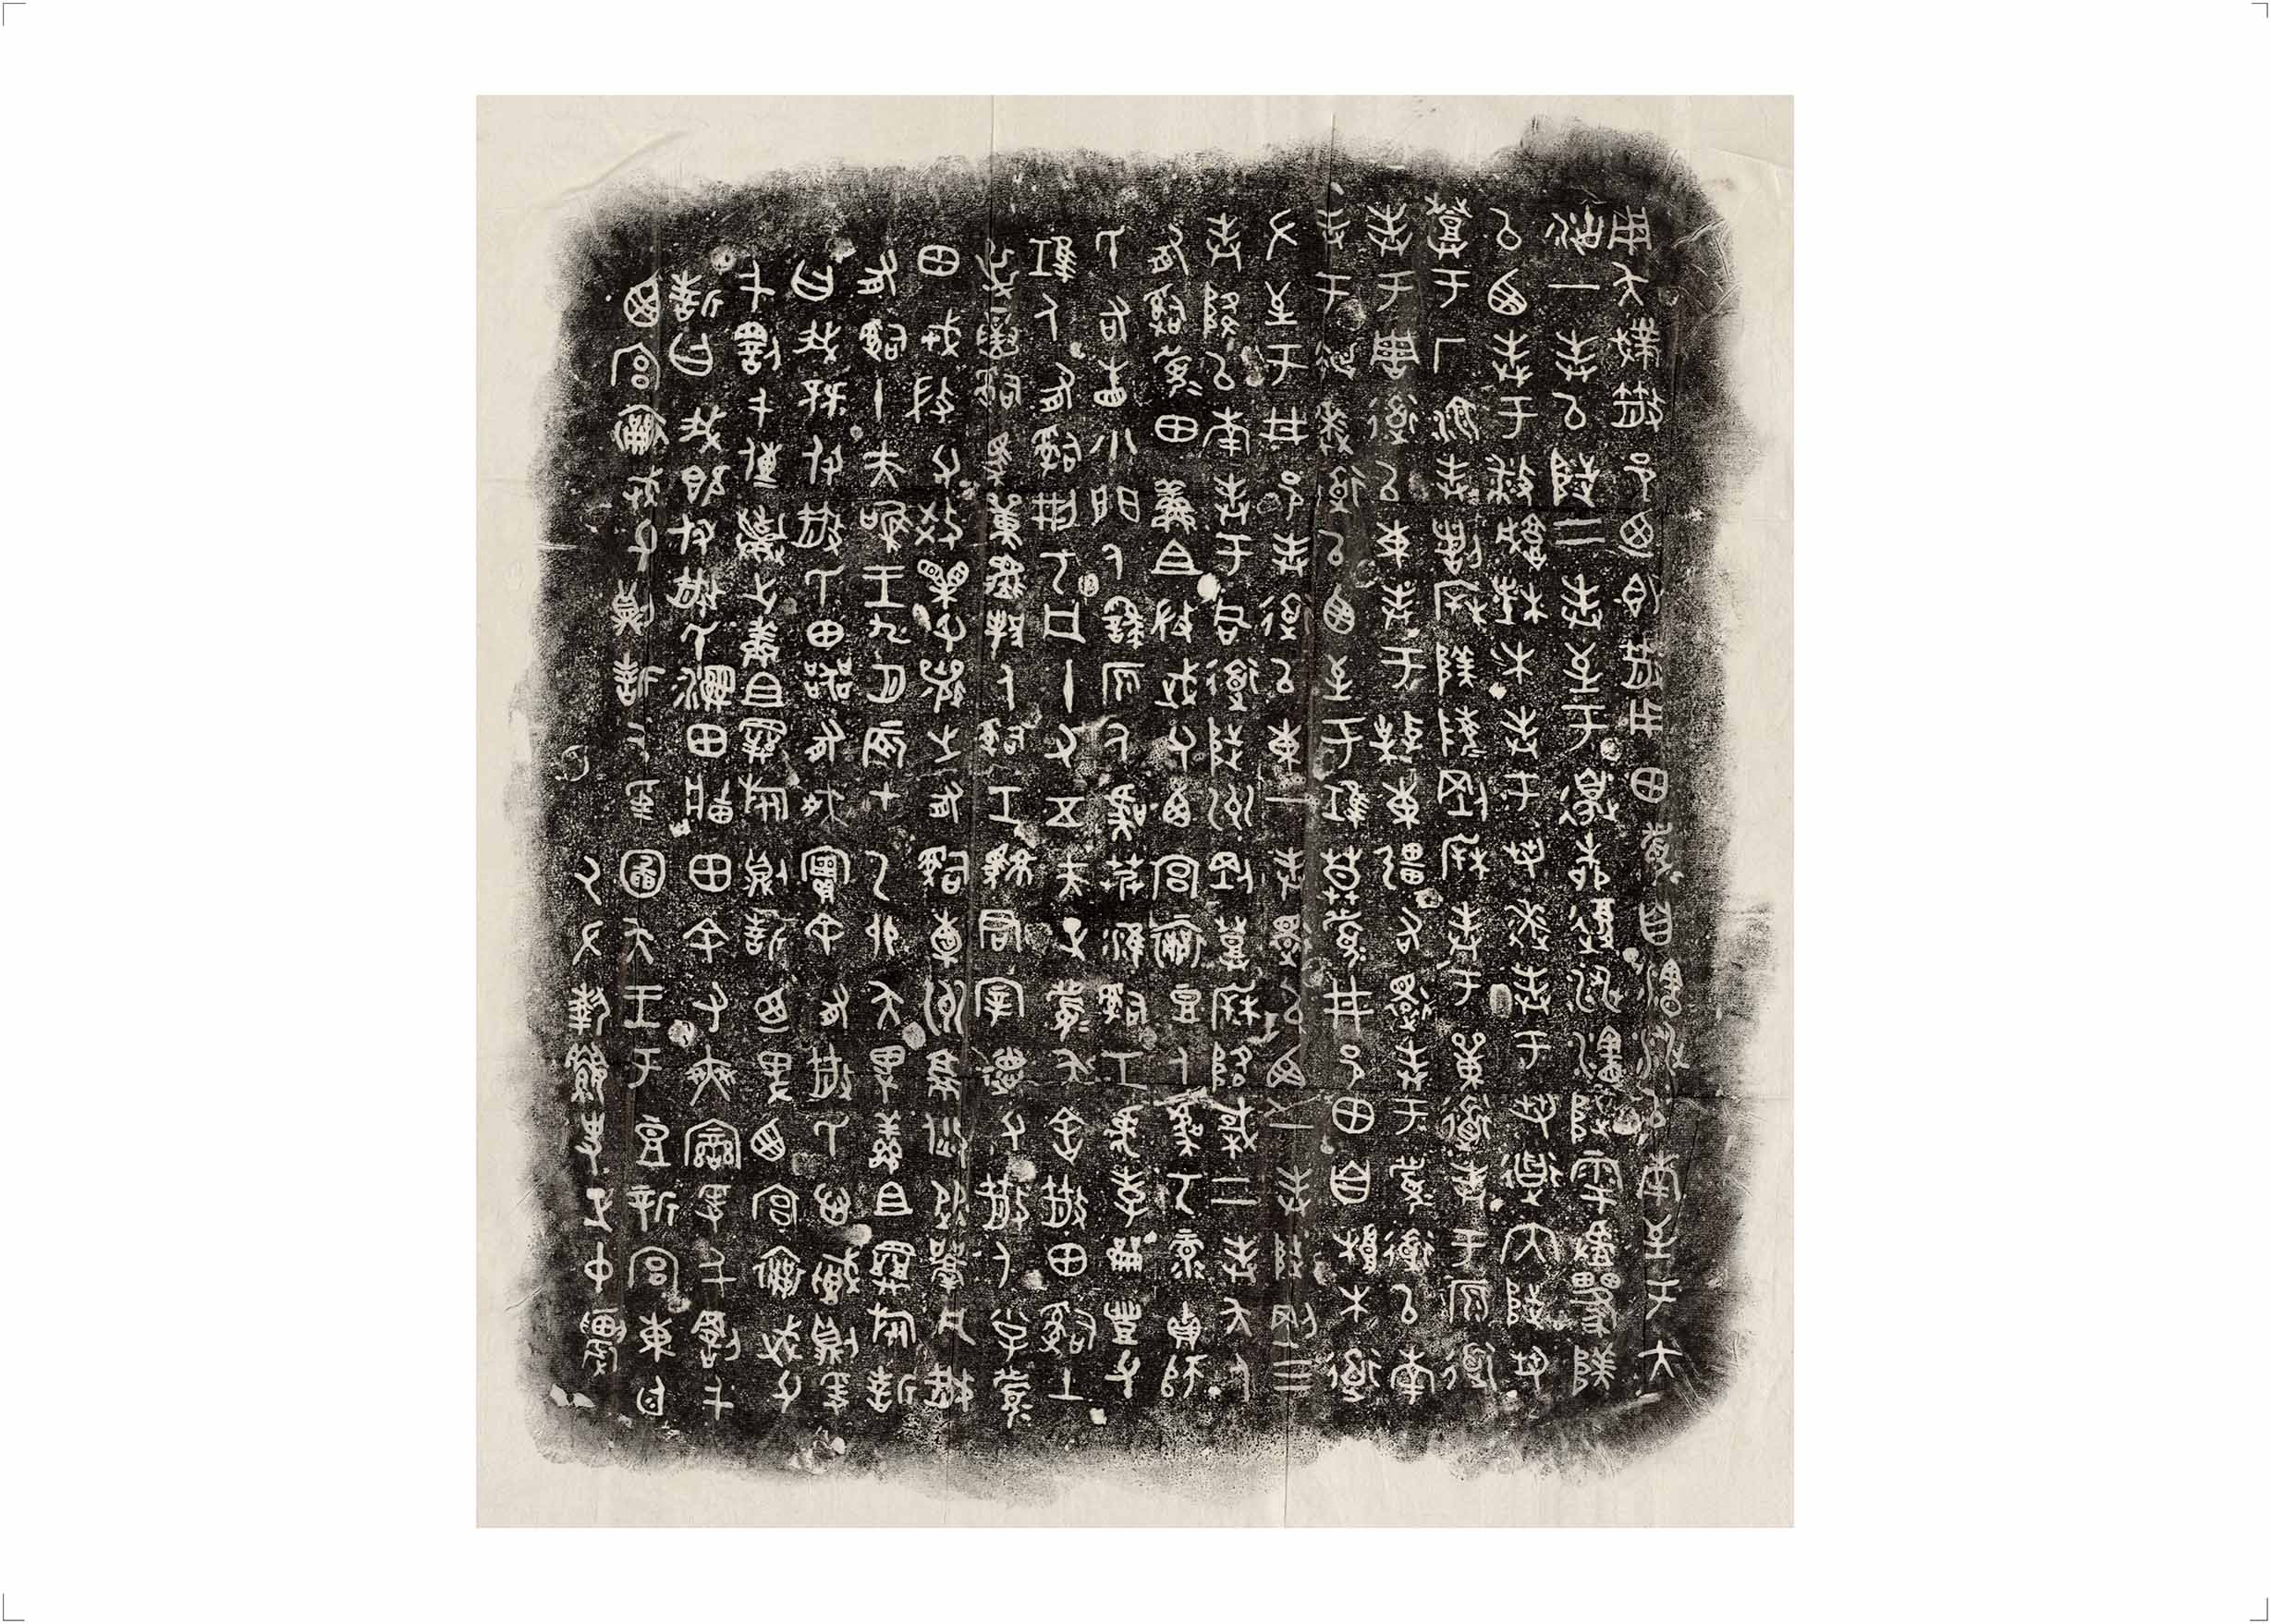 用夨𢾭散邑廼即散用田眉自瀗涉以南至于大
沽一奉以陟二奉至于邊柳復涉瀗陟雩
以西奉于播城楮木奉于芻逨奉于芻道內陟芻
登于厂湶奉諸𣏟陵陵剛𣏟奉于道奉于原道
奉于周道以東奉于東彊右還奉于眉道以南
奉于逨道以西至于堆莫眉井邑田自根木道
左至于井邑奉道以東一奉還以西一奉陟剛三
奉降以南奉于同道陟州剛登𣏟降棫二奉夨人
有𤔲眉田鮮且微武父西宮襄豆人虞丂彔貞師
氏右眚小門人繇原人虞艿淮𤔲工虎孝豐父
堆人有𤔲刑丂凡十又五夫正眉夨舍散田𤔲土
𤔲馬人𤔲工君宰德父散人小子眉
田戎微父效櫂父襄之有𤔲橐州就焂從凡散
有𤔲十夫唯王九月辰才乙卯夨卑鮮且旅誓
曰我既付散氏田器有爽實余有散氏心賊則爰
千罰千傳棄之鮮且旅則誓廼卑西宮襄武父
誓曰我既付散氏濕田田余又爽爰千罰千
西宮襄武父則誓厥受圖夨王于豆新宮東廷
厥左執要史正中農